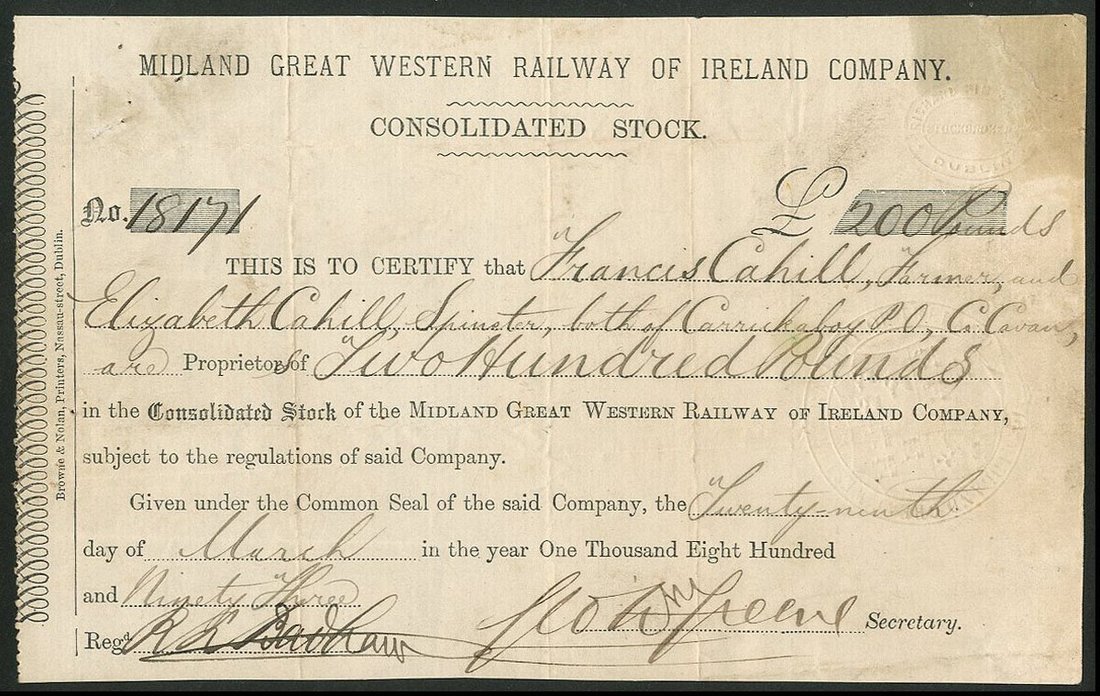 MIDLAND GREAT WESTERN RAILWAY OF IRELAND COMPANY.
CONSOLIDATED STOCK.
No. 18171 £ 200 Pounds
THIS IS TO CERTIFY that Francis Cahill, Farmer, and
Elizabeth Cahill, Spinster, both of Carrickaboy P.O., Co Cavan,
are Proprietors of Two Hundred Pounds
in the Consolidated Stock of the MIDLAND GREAT WESTERN RAILWAY OF IRELAND COMPANY,
subject to the regulations of said Company.
Given under the Common Seal of the said Company, the Twenty-ninth
day of March in the year One Thousand Eight Hundred
and Ninety Three
Regd. R L Badham Geo Wm Greene Secretary.
Browne & Nolan, Printers, Nassau-street, Dublin.
STOCKBROKER
DUBLIN